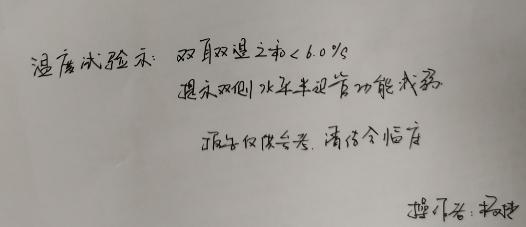 温度试验示: 双耳双温之和<6.0°/s
提示双侧水平半规管功能减弱
报告仅供参考, 请结合临床
操作者: